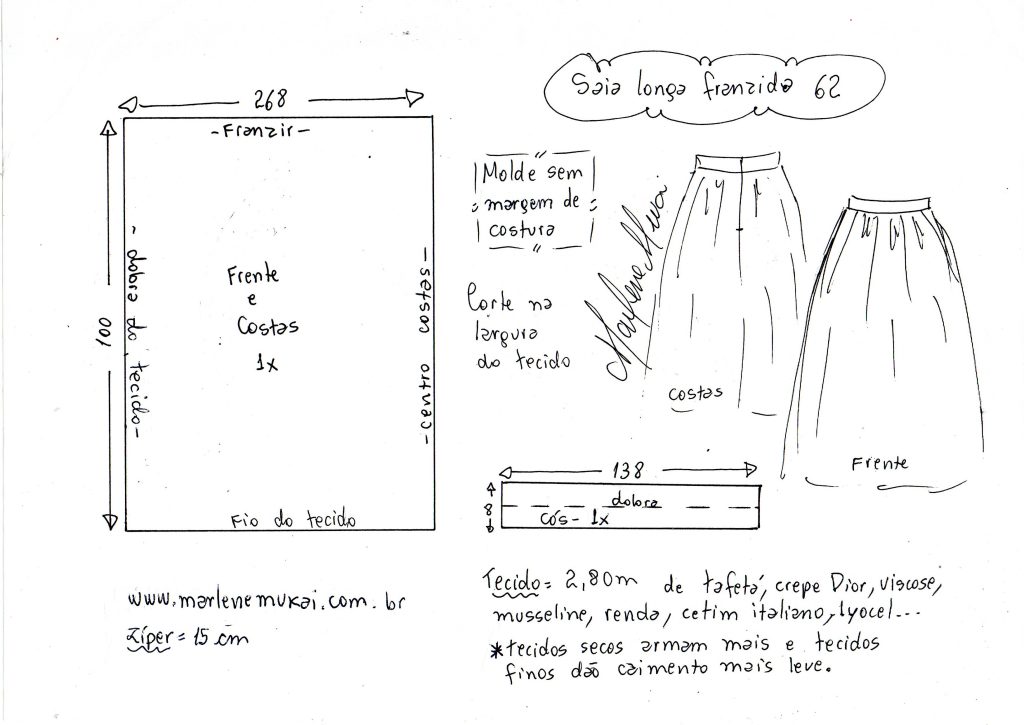 Saia longa franzida 62
268
- Franzir -
100
- dobra do tecido -
Frente
e
Costas
1x
- centro costas -
Fio do tecido
Molde sem
margem de
costura
Corte na
largura
do tecido
Marlene Mukai
costas
Frente
138
8
dobra
Cós - 1x
www.marlenemukai.com.br
Zíper = 15 cm
Tecido = 2,80m de tafetá, crepe Dior, viscose,
musseline, renda, cetim italiano, lyocel...
*tecidos secos armam mais e tecidos
finos dão caimento mais leve.